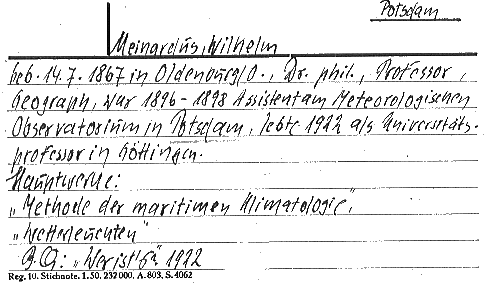 Potsdam
Meinardus, Wilhelm
geb. 14.7. 1867 in Oldenburg/O., Dr. phil., Professor,
Geograph, war 1896-1898 Assistent am Meteorologischen
Observatorium in Potsdam, lebte 1922 als Universitäts-
professor in Göttingen.
Hauptwerke:
„Methode der maritimen Klimatologie",
„Wetterleuchten"
B.Q.: „Wer ist's" 1922
Reg. 10. Stichnote. 1. 50. 232000. A. 803, S. 4062